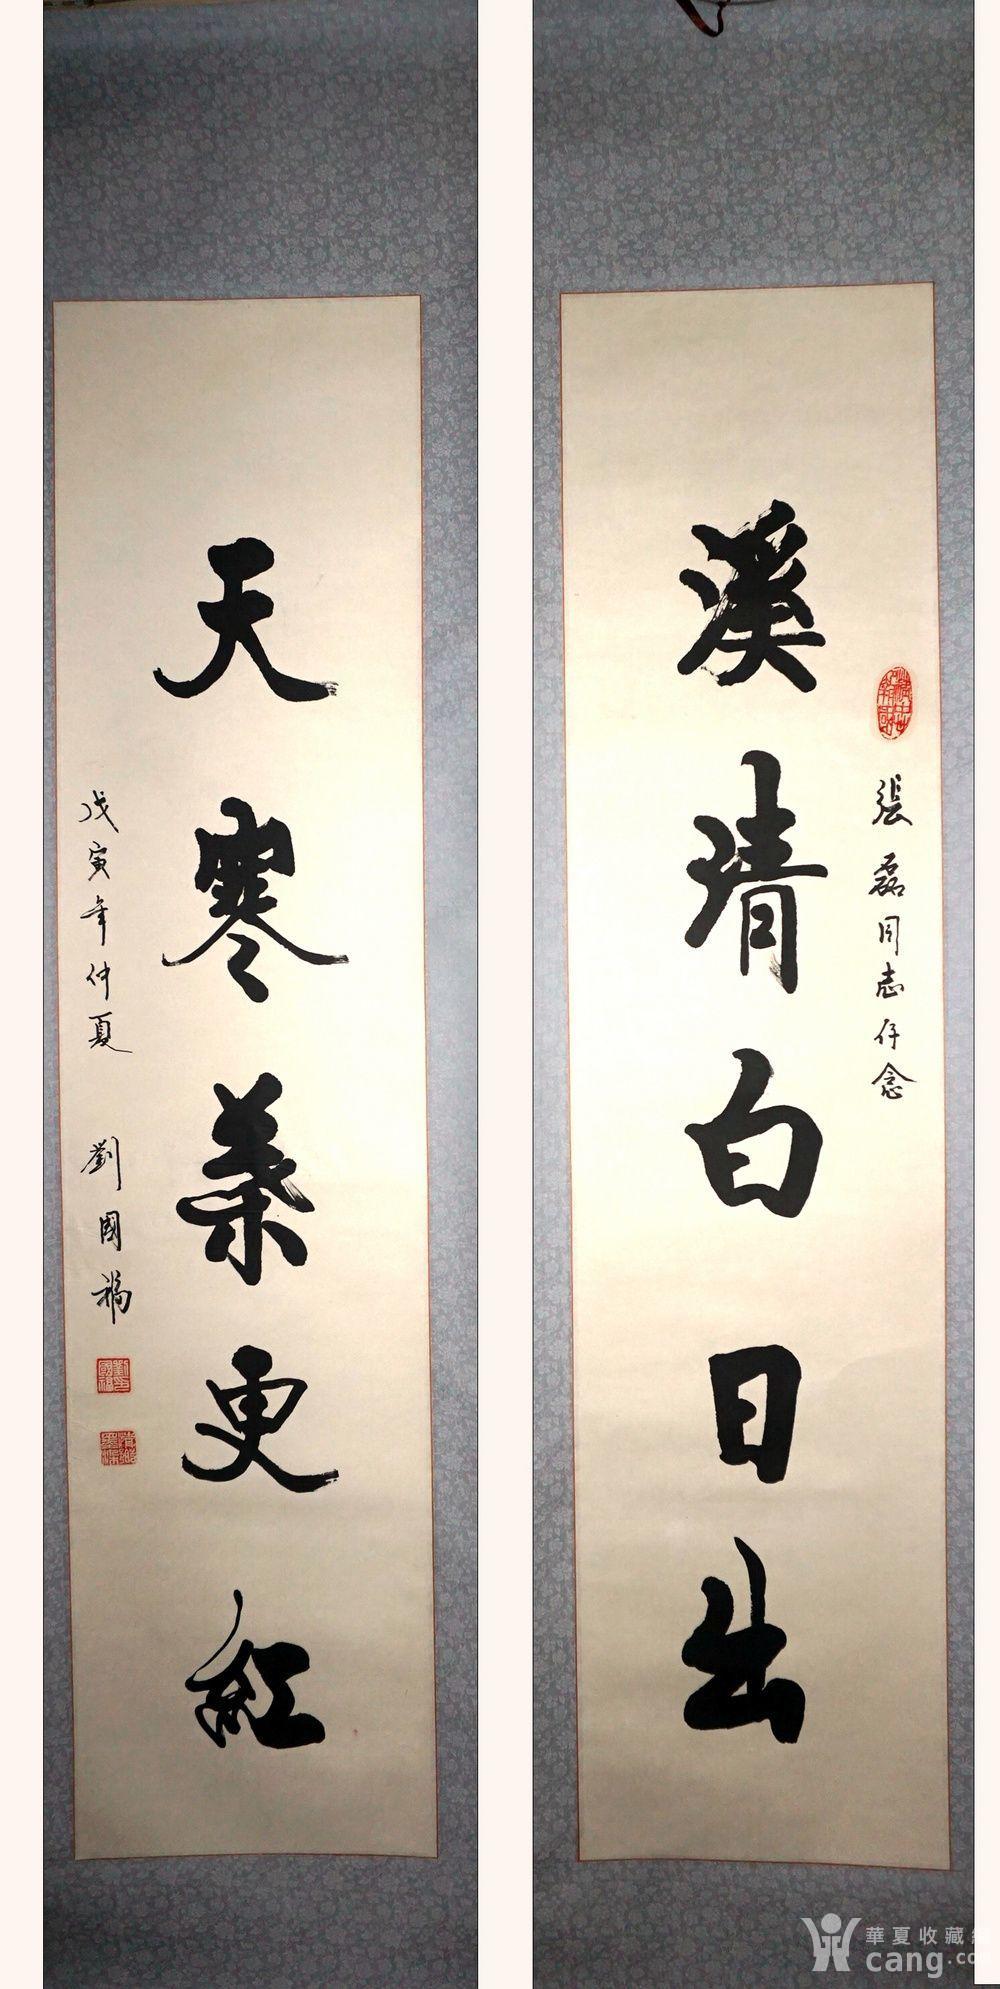 張磊同志存念
溪清白日出
天寒葉更紅
戊寅年仲夏 劉國福
華夏收藏網
cang.com